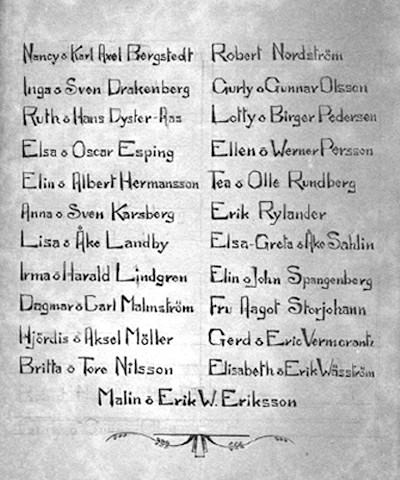 Nancy o Karl Axel Bergstedt
Inga o Sven Drakenberg
Ruth o Hans Dyster-Aas
Elsa o Oscar Esping
Elin o Albert Hermansson
Anna o Sven Karsberg
Lisa o Åke Landby
Irma o Harald Lindgren
Dagmar o Carl Malmström
Hjördis o Aksel Möller
Britta o Tore Nilsson
Robert Nordström
Gurly o Gunnar Olsson
Lotty o Birger Pedersen
Ellen o Werner Persson
Tea o Olle Rundberg
Erik Rylander
Elsa-Greta o Åke Sahlin
Elin o John Spangenberg
Fru Aagot Storjohann
Gerd o Eric Vermcrantz
Elisabeth o Erik Wäsström
Malin o Erik W. Eriksson